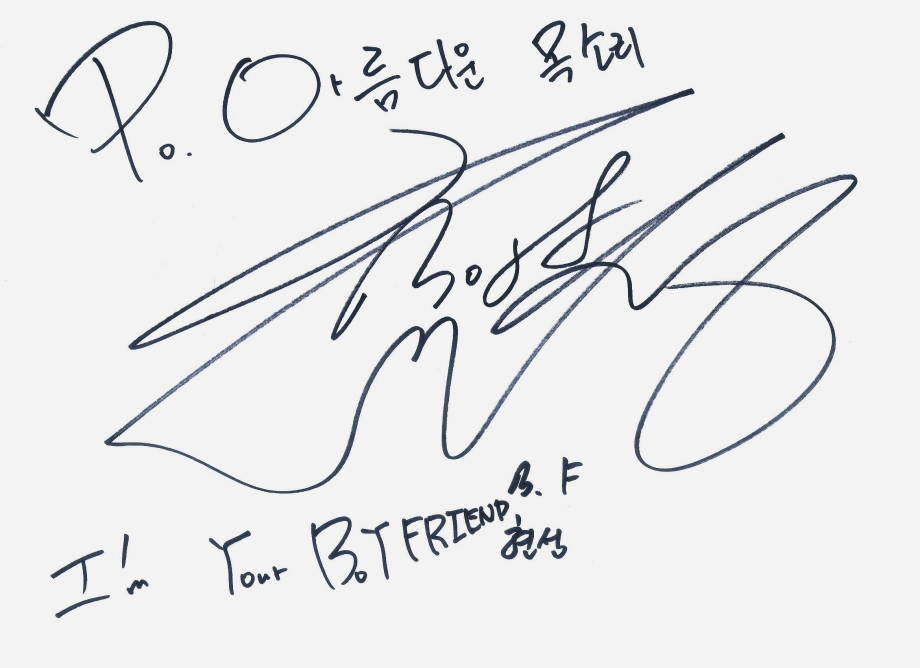 Po. 아름다운 목소리
I'm Your BoYFRIEND
B. F
현성